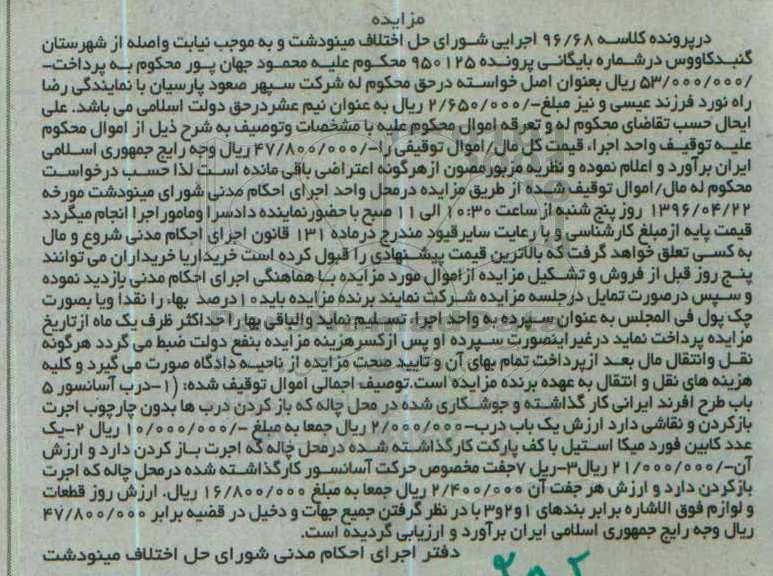 مزایده
درپرونده کلاسه ۹۶/۶۸ اجرایی شورای حل اختلاف مینودشت و به موجب نیابت واصله از شهرستان
گنبدکاووس درشماره بایگانی پرونده ۹۵۰۱۲۵ محکوم علیه محمود جهان پور محکوم به پرداخت-
/۵۳/۰۰۰/۰۰۰ ریال بعنوان اصل خواسته درحق محکوم له شرکت سپهر صعود پارسیان با نمایندگی رضا
راه نورد فرزند عیسی و نیز مبلغ-/۲/۶۵۰/۰۰۰ ریال به عنوان نیم عشردرحق دولت اسلامی می باشد. علی
ایحال حسب تقاضای محکوم له و تعرفه اموال محکوم علیه با مشخصات وتوصیف به شرح ذیل از اموال محکوم
علیه توقیف واحد اجرا، قیمت کل مال/اموال توقیفی را-/۴۷/۸۰۰/۰۰۰ ریال وجه رایج جمهوری اسلامی
ایران برآورد و اعلام نموده و نظریه مزبورمصون ازهرگونه اعتراضی باقی مانده است لذا حسب درخواست
محکوم له مال/اموال توقیف شده از طریق مزایده درمحل واحد اجرای احکام مدنی شورای مینودشت مورخه
۱۳۹۶/۰۴/۲۲ روز پنج شنبه از ساعت ۱۰:۳۰ الی ۱۱ صبح با حضورنماینده دادسرا ومامور اجرا انجام میگردد
قیمت پایه ازمبلغ کارشناسی و با رعایت سایرقیود مندرج درماده ۱۳۱ قانون اجرای احکام مدنی شروع و مال
به کسی تعلق خواهد گرفت که بالاترین قیمت پیشنهادی را قبول کرده است خریداریا خریداران می توانند
پنج روز قبل از فروش و تشکیل مزایده ازاموال مورد مزایده با هماهنگی اجرای احکام مدنی بازدید نموده
و سپس درصورت تمایل درجلسه مزایده شرکت نمایند برنده مزایده باید ۱۰درصد بهاء را نقدا ویا بصورت
چک پول فی المجلس به عنوان سپرده به واحد اجرا، تسلیم نماید والباقی بها را حداکثر ظرف یک ماه ازتاریخ
مزایده پرداخت نماید درغیراینصورت سپرده او پس ازکسرهزینه مزایده بنفع دولت ضبط می گردد هرگونه
نقل وانتقال مال بعد ازپرداخت تمام بهای آن و تایید صحت مزایده از ناحیه دادگاه صورت می گیرد و کلیه
هزینه های نقل و انتقال به عهده برنده مزایده است.توصیف اجمالی اموال توقیف شده: (۱-درب آسانسور ۵
باب طرح افرند ایرانی کار گذاشته و جوشکاری شده در محل چاله که باز کردن درب ها بدون چارچوب اجرت
بازکردن و نقاشی دارد ارزش یک باب درب-۲/۰۰۰/۰۰۰ ریال جمعا به مبلغ -/۱۰/۰۰۰/۰۰۰ ریال ۲-یک
عدد کابین فورد میکا استیل با کف پارکت کارگذاشته شده درمحل چاله که اجرت باز کردن دارد و ارزش
آن-/۲۱/۰۰۰/۰۰۰ ریال۳-ریل ۷جفت مخصوص حرکت آسانسور کارگذاشته شده درمحل چاله که اجرت
بازکردن دارد و ارزش هر جفت آن ۲/۴۰۰/۰۰۰ ریال جمعا به مبلغ ۱۶/۸۰۰/۰۰۰ ریال. ارزش روز قطعات
و لوازم فوق الاشاره برابر بندهای ۱و۲و۳ با در نظر گرفتن جمیع جهات و دخیل در قضیه برابر ۴۷/۸۰۰/۰۰۰
ریال وجه رایج جمهوری اسلامی ایران برآورد و ارزیابی گردیده است.
دفتر اجرای احکام مدنی شورای حل اختلاف مینودشت